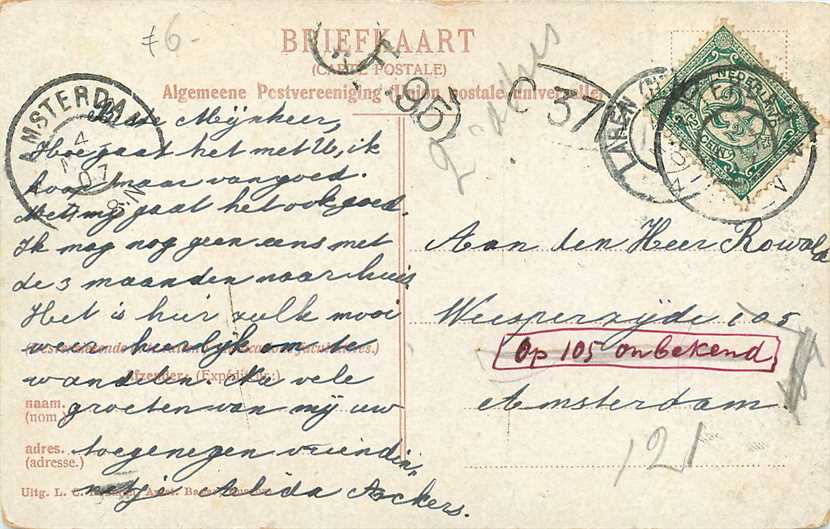 £6-
BRIEFKAART
(CARTE POSTALE)
Algemeene Postvereeniging (Union postale universelle)
AMSTERDAM
4
07
8-9N
95
37
LAREN
NEDERLAND
2½
CENT
Mijnheer,
Hoe gaat het met U, ik
hoop maar van goed.
Met mij gaat het ook goed.
Ik mag nog geen eens met
de 3 maanden naar huis
Het is hier zulk mooi
weer heerlijk om te
wandelen. Nu vele
groeten van mij uw
toegenegen vriendin,
netje Alida Ackers.
Afzender: (Expéditeur:)
naam.
(nom.)
adres.
(adresse.)
Uitg. L. C.
Aan den Heer Rowold
Weesperzijde 105
Op 105 onbekend
Amsterdam.
121